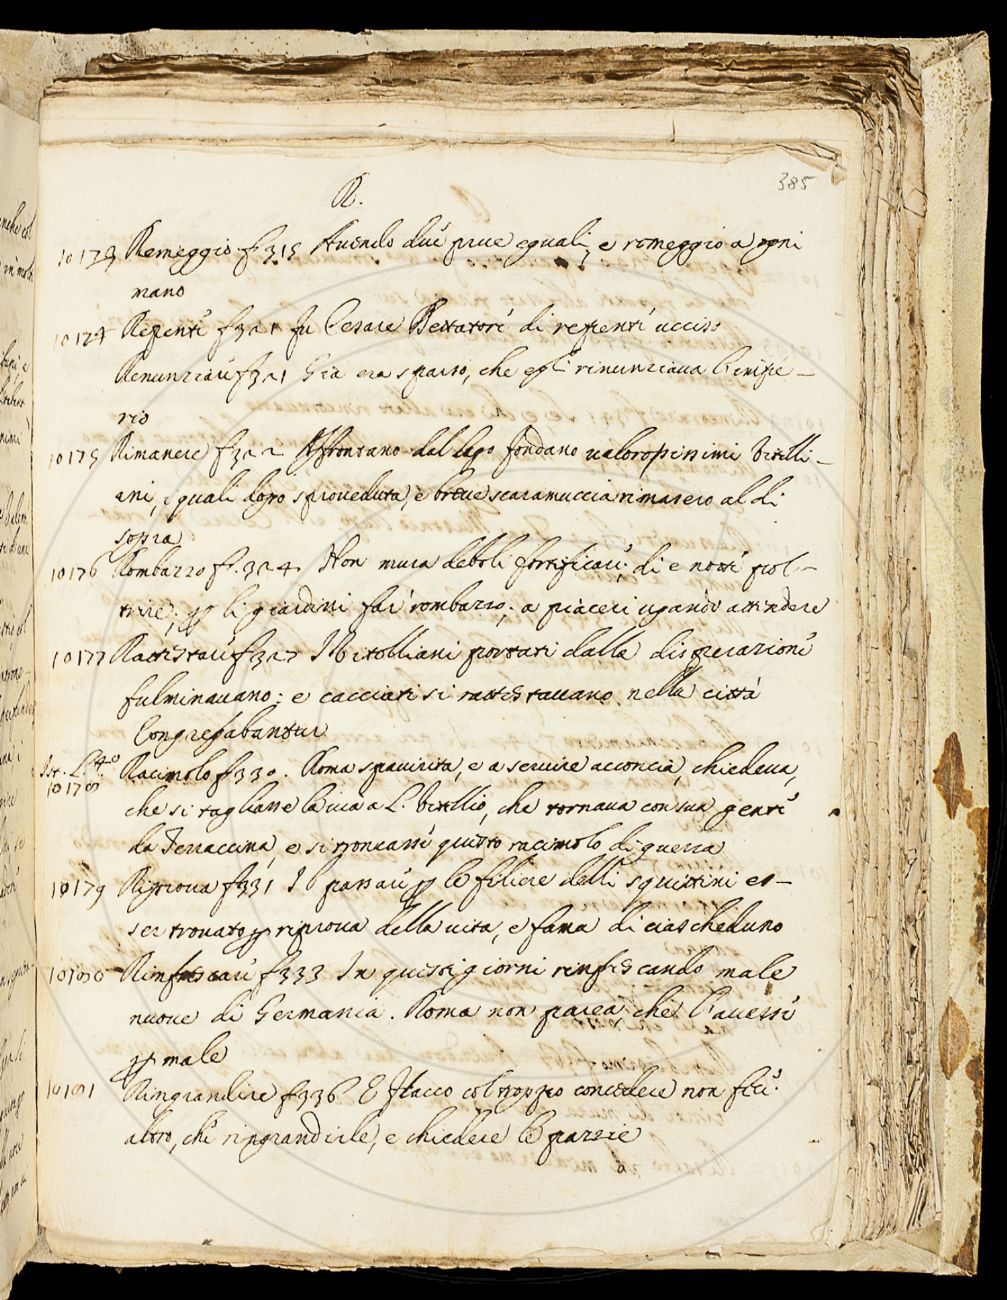 385
R.
10173 Remeggio f. 315 Avendo due prue eguali, e remeggio a ogni
mano
10174 Repente f321 fu Cesare Dettatore di repente ucciso
Renunziare f321 Già era sparso, che egli rinunziava l'impe-
rio
10175 Rimanere f322 Affrontano dal lago fondano valorosissimi Vitelli-
ani, e quali dopo sproveduta, e breve scaramuccia rimasero al di
sopra
10176 Rombazzo f. 324 Non mura deboli fortificare; di e notte pol-
trire; p li giardini far rombazzo; a piaceri ugando attendere
10177 Rattestare f327 I Vitelliani portati dalla disperazione
fulminavano: e cacciati si rattestavano nella città
Congregabantur
Ist. L. 4.º
10178 Racimolo f330. Roma spaurita, e a servire acconcia, chiedeva,
che si tagliasse la via a L. Vitellio, che tornava con sua gente
da Terraccina, e si troncasse questo racimolo di guerra
10179 Riprova f331 Il passare p le filiere delli squittini es-
ser trovato p riprova della vita, e fama di ciascheduno
10180 Rinfrescare f333 In questi giorni rinfrescando male
nuove di Germania. Roma non parea, che l'avesse
p male
10181 Ringrandire f336 E Flacco col troppo concedere non fece
altro, che ringrandirle, e chiedere le pazzie